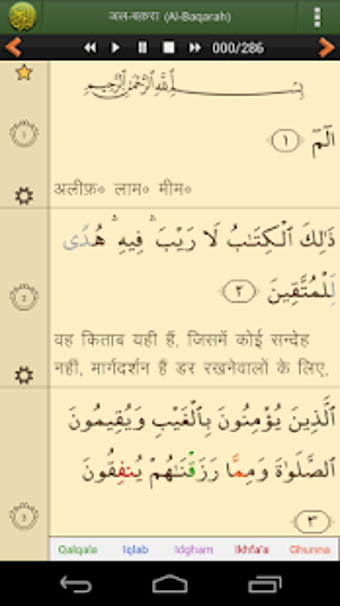 अल-बक़रा (Al-Baqarah)
000/286
بِسْمِ ٱللَّهِ ٱلرَّحْمَٰنِ ٱلرَّحِيمِ
الٓمٓ ١
1
अलीफ़॰ लाम॰ मीम॰
ذَٰلِكَ ٱلْكِتَٰبُ لَا رَيْبَ ۛ فِيهِ ۛ هُدًى
لِّلْمُتَّقِينَ ٢
2
वह किताब यही हैं, जिसमें कोई सन्देह
नहीं, मार्गदर्शन हैं डर रखनेवालों के लिए,
ٱلَّذِينَ يُؤْمِنُونَ بِٱلْغَيْبِ وَيُقِيمُونَ
ٱلصَّلَوٰةَ وَمِمَّا رَزَقْنَٰهُمْ يُنفِقُونَ
٣
3
Qalqala Iqlab Idgham Ikhfa'a Ghunna